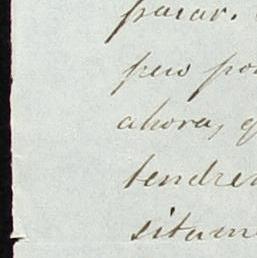 parar.
pero por
ahora, q
tendrem
situam